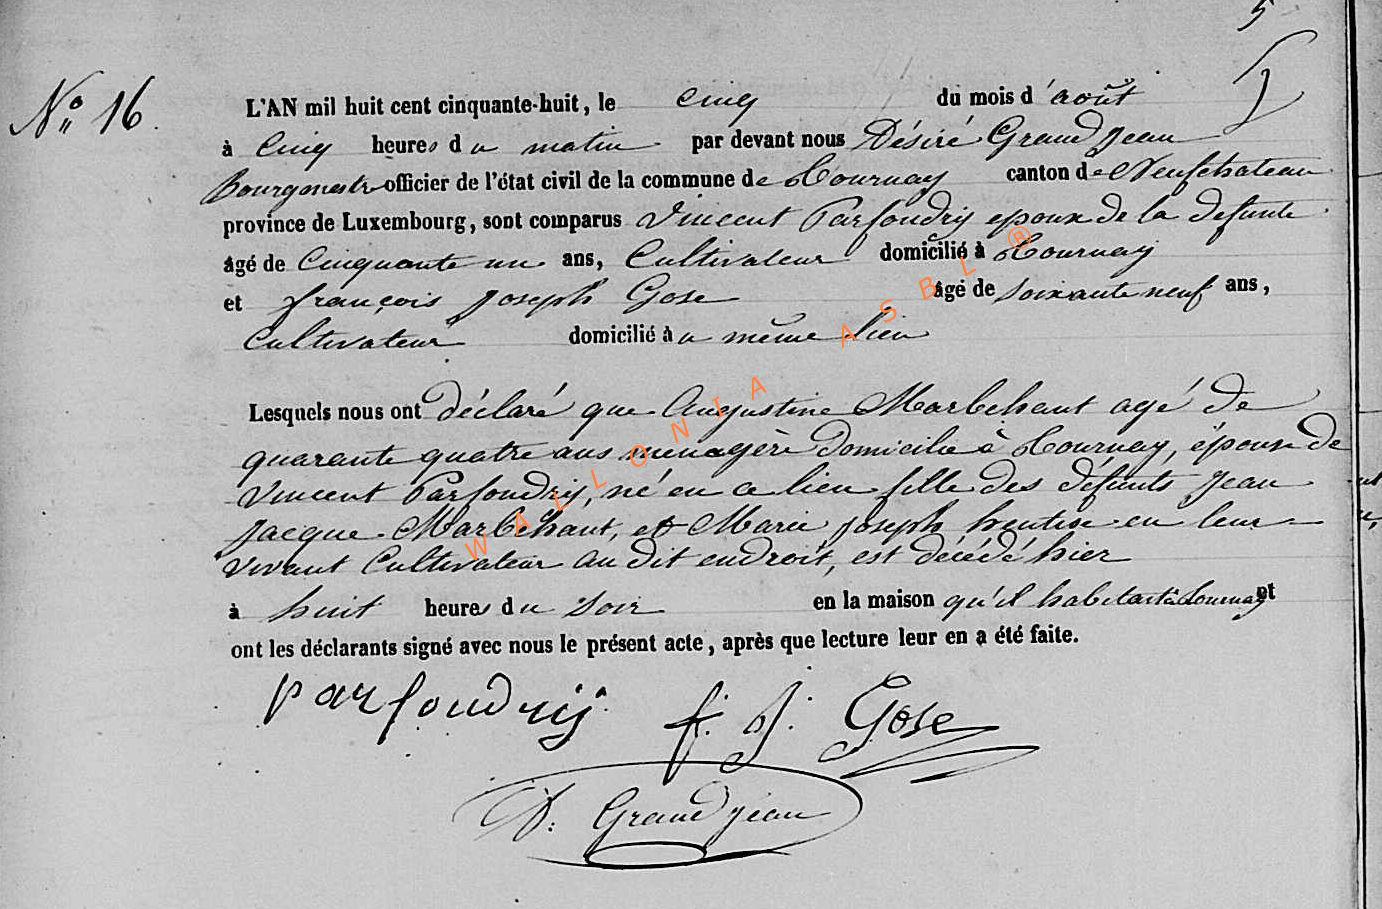 5
N° 16.
L'AN mil huit cent cinquante-huit, le cinq du mois d'août
à cinq heures du matin par devant nous Désiré Grandjean
Bourgmestre officier de l'état civil de la commune de Tournay canton de Neufchateau
province de Luxembourg, sont comparus Vincent Parfondrÿ epoux de la defunte
âgé de Cinquante un ans, Cultivateur domicilié à Tournay
et françois Joseph Gose âgé de soixante neuf ans,
Cultivateur domicilié au même lieu
Lesquels nous ont déclaré que Augustine Marbehant agé de
quarante quatre ans ménagère domicilie à Tournay, épouse de
Vincent Parfondrÿ, né en ce lieu fille des défunts Jean
Jacque Marbehant, et Marie Joseph hentise en leur
vivant Cultivateur au dit endroit, est décédé hier
à huit heures du soir en la maison qu'il habitait à Tournay et
ont les déclarants signé avec nous le présent acte, après que lecture leur en a été faite.
parfondrÿ f. J. Gose
D. Grandjean
WALLONIA ASBL ®